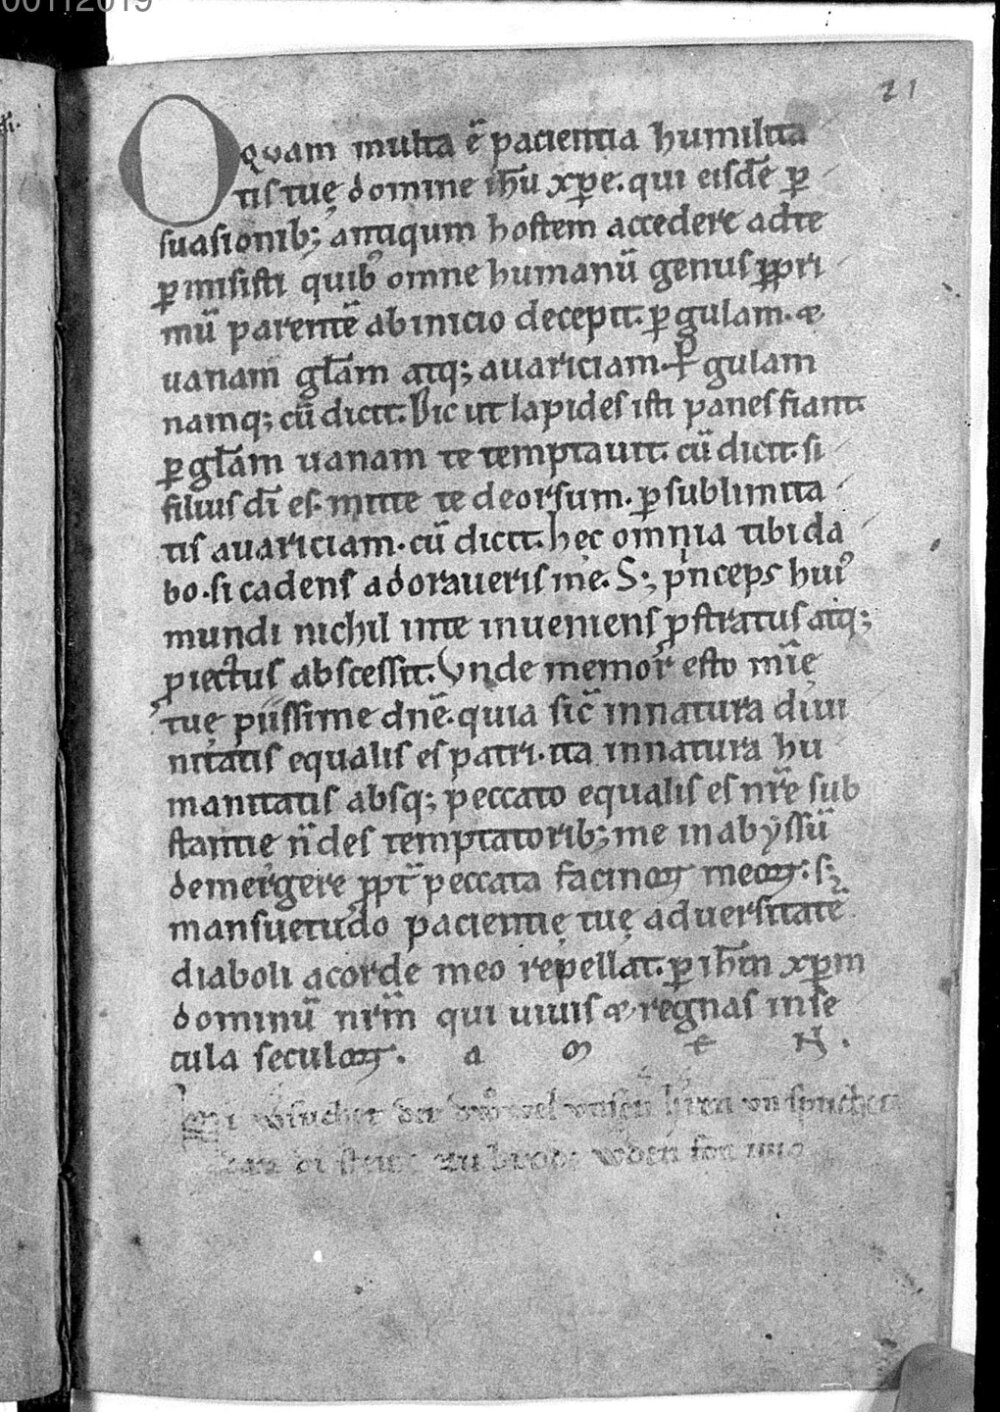 00112019
21
O quam multa ē pacientia humilita
tis tuę domine ihū xp̄e. qui eisdē ꝑ
suasionib; antiqum hostem accedere ad te
ꝑmisisti quibꝰ omne humanū genus ꝓpri
mū parentē ab inicio decepit. ꝑ gulam. ⁊
uanam gl̄am atq; auariciam. ꝑ gulam
namq; cū dicit. Dic ut lapides isti panes fiant.
ꝑ gl̄am uanam te temptauit. cū dicit. si
filius dī es. mitte te deorsum. ꝑ sublimita
tis auariciam. cū dicit. hęc omnia tibi da
bo. si cadens adoraueris me. S; pⁱnceps huiꝰ
mundi nichil in te inueniens ꝓstratus atq;
ꝓiectus abscessit. Vnde memor esto mīę
tuę piissime dn̄e. quia sic̄ in natura diui
nitatis equalis es patri. ita in natura hu
manitatis absq; peccato equalis es nr̄e sub
stantię n̄ des temptatorib; me in abyssū
demergere ꝓpt̄ peccata facinoꝝ meoꝝ. s;
mansuetudo pacientię tuę aduersitatē
diaboli a corde meo repellat. ꝑ ihm̄ xp̄m
dominū nr̄m̄ qui uiuis ⁊ regnas in se
cula seculoꝝ. a m e N.